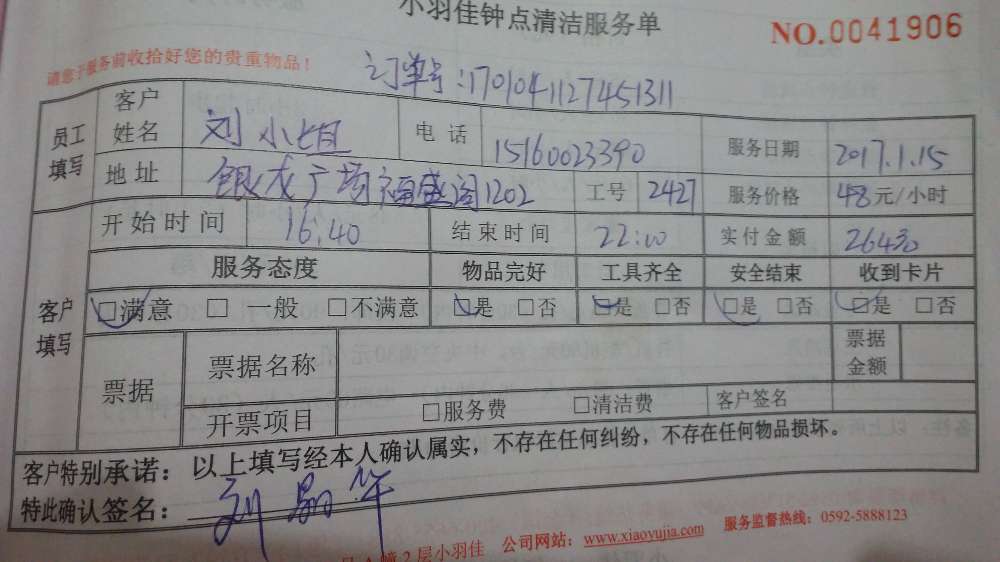 小羽佳钟点清洁服务单
NO.0041906
请您于服务前收拾好您的贵重物品！
订单号:1701041127451311
员工填写 客户姓名 刘小姐 电话 15160023390 服务日期 2017.1.15
地址 银龙广场福盛阁1202 工号 2427 服务价格 48元/小时
客户填写 开始时间 16:40 结束时间 22:00 实付金额
服务态度 物品完好 工具齐全 安全结束 收到卡片
□满意 □一般 □不满意 □是 □否 □是 □否 □是 □否 □是 □否
票据 票据名称 票据金额
开票项目 □服务费 □清洁费 客户签名
客户特别承诺：以上填写经本人确认属实，不存在任何纠纷，不存在任何物品损坏。
特此确认签名：刘
2层小羽佳 公司网站：www.xiaoyujia.com 服务监督热线：0592-5888123